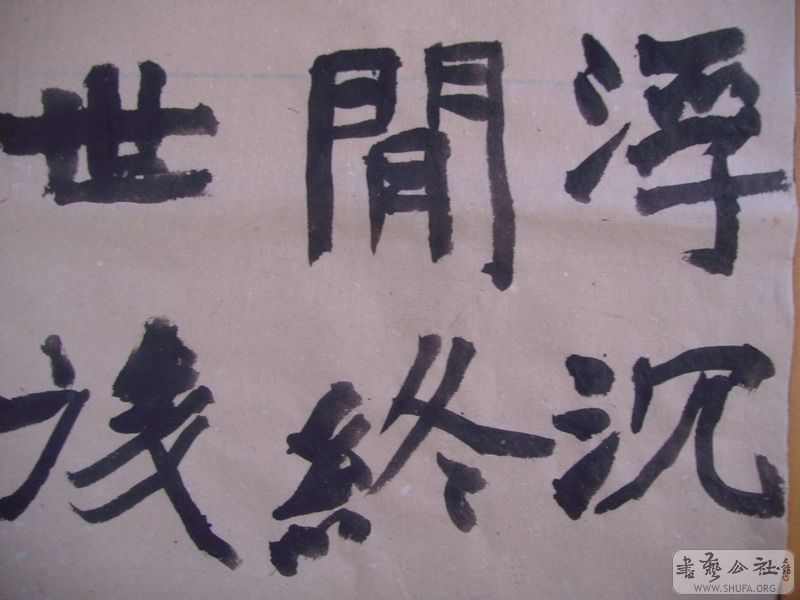 浮沉
閒終
世
書藝公社
WWW.SHUFA.ORG